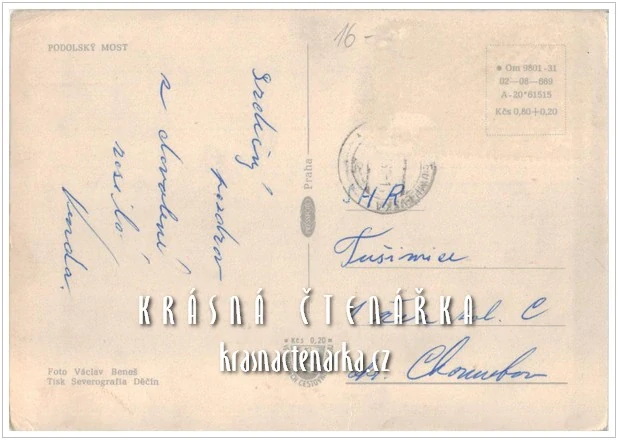 16-
PODOLSKÝ MOST
• Om 9601-31
02—06—669
A-20*61515
Kčs 0,60+0,20
Srdečný
pozdrav
z dovolené
posílá
Vonda.
Praha
HR
Tušimice
C
Chomutov
KRÁSNÁ ČTENÁŘKA
krasnactenarka.cz
Kčs 0,20
Foto Václav Beneš
Tisk Severografia Děčín